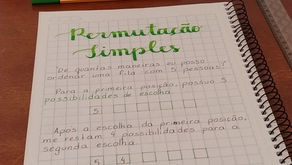 Permutação
Simples
De quantas maneiras eu posso
ordenar uma fila com 5 pessoas?
Para a primeira posição, possuo 5
possibilidades de escolha
5
Após a escolha da primeira posição,
me restam 4 possibilidades para a
segunda escolha.
5 4